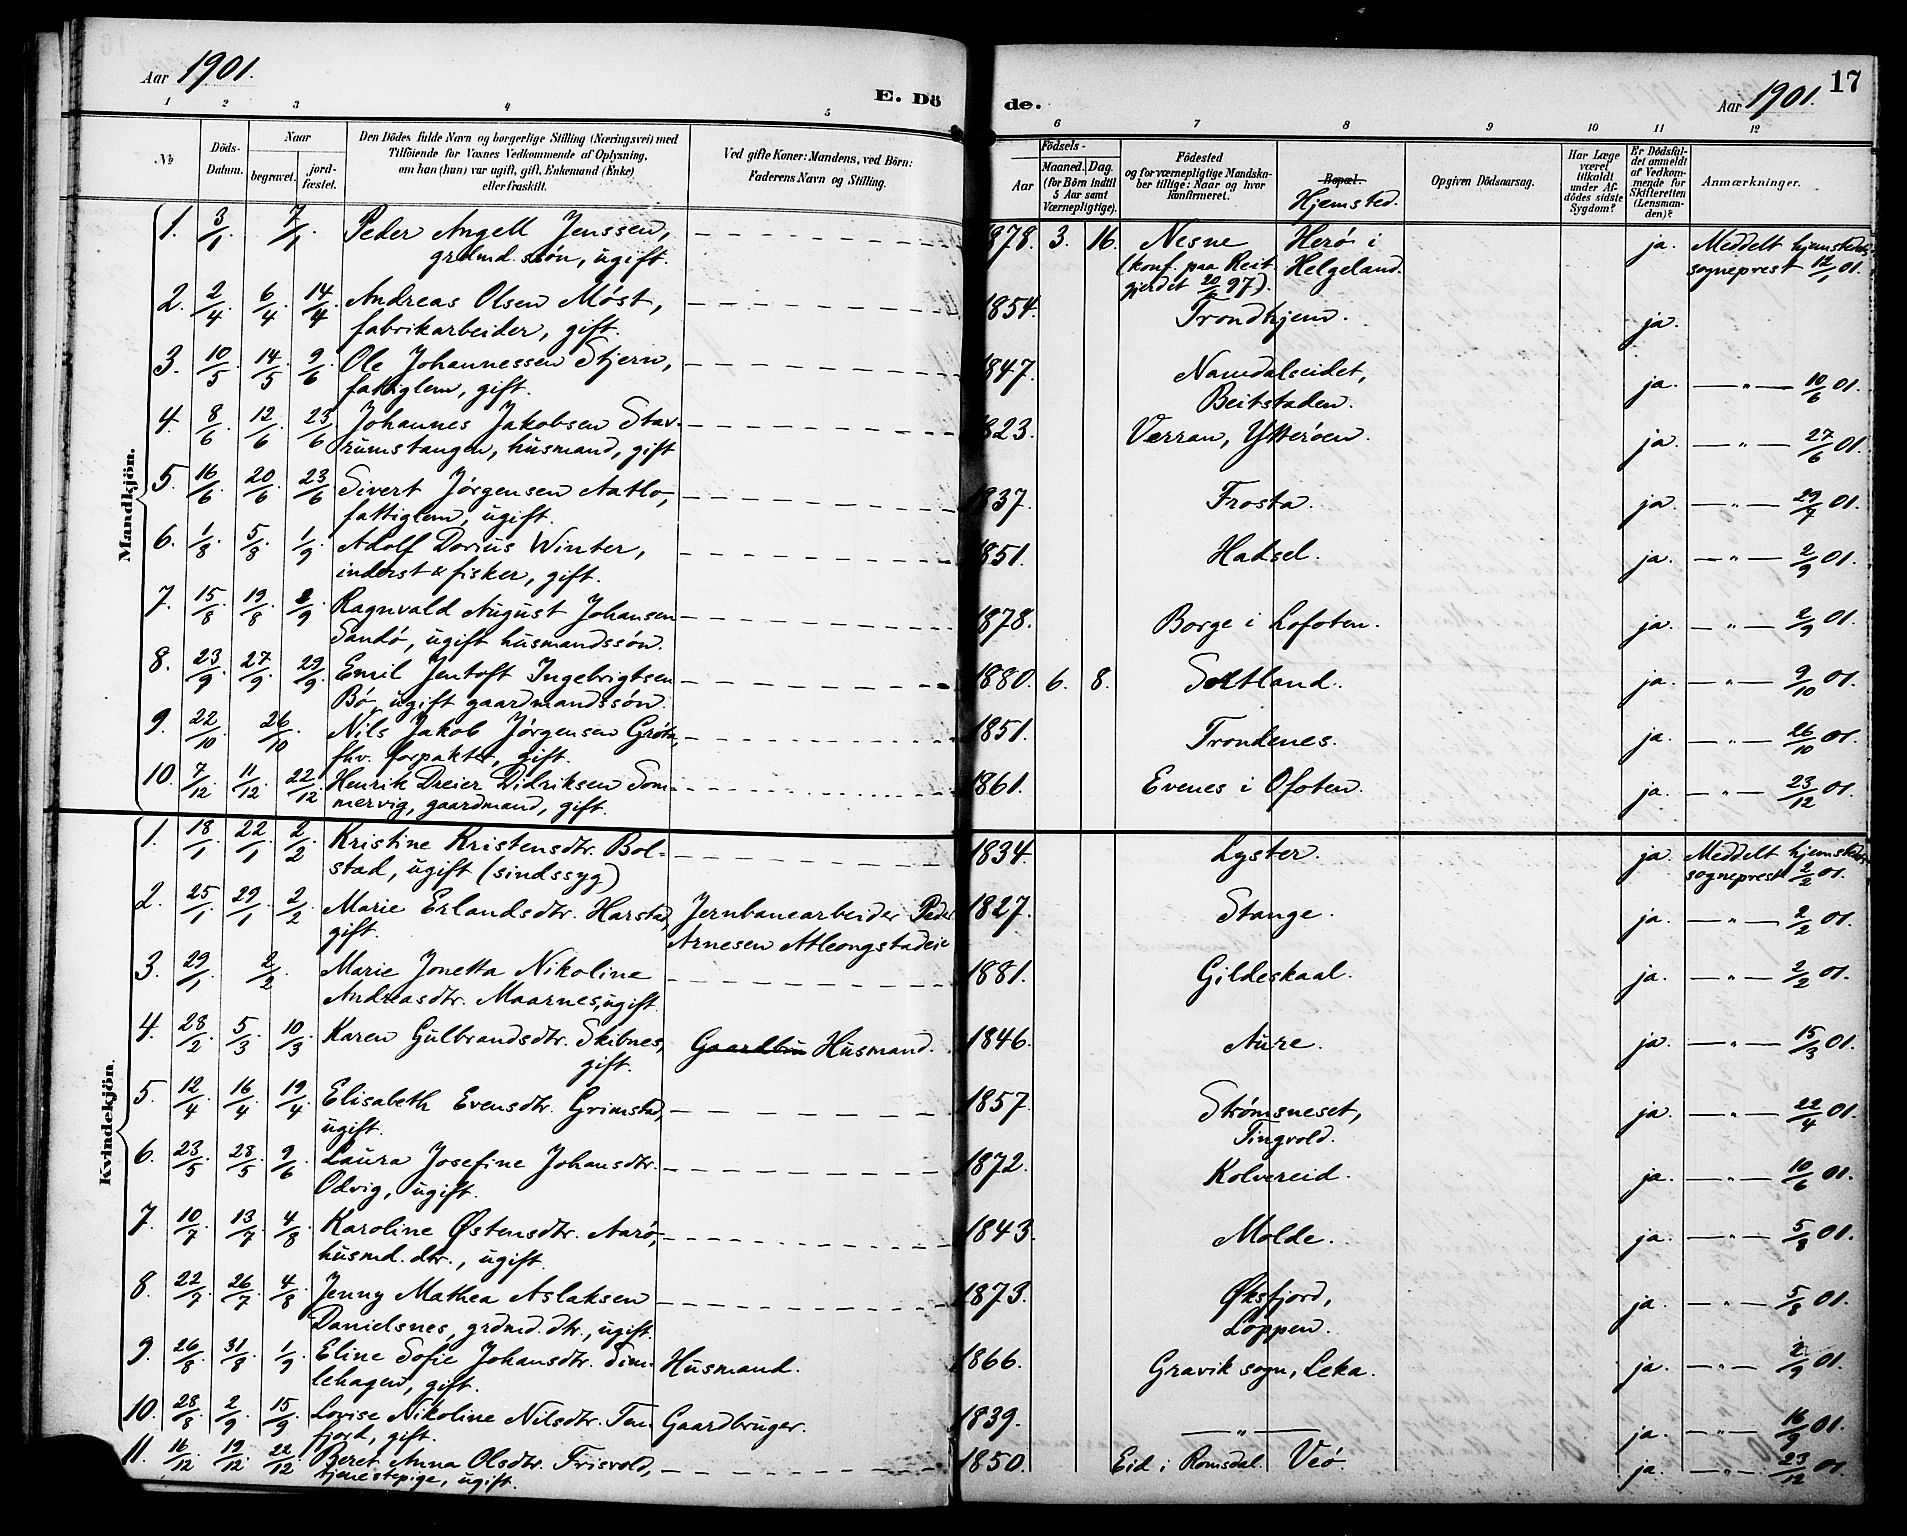 Aar 1901.
E. Dö
1 2 3 4 5
№
Döds-
Datum.
Naar
begravet.
jord-
fæstet.
Den Dödes fulde Navn og borgerlige Stilling (Næringsvei) med
Tilföiende for Voxnes Vedkommende af Oplysning,
om han (hun) var ugift, gift, Enkemand (Enke)
eller fraskilt.
Ved gifte Koner: Mandens, ved Börn:
Faderens Navn og Stilling.
Mandkjön.
1. 3/1. 7/1 Peder Angell Jenssen,
grdmd. søn, ugift.
2. 2/4 6/4 14/4 Andreas Olsen Møst,
fabrikarbeider, gift.
3. 10/5 14/5 9/6 Ole Johannessen Stjern,
fattiglem, gift.
4. 8/6 12/6 23/6 Johannes Jakobsen Stav-
rumstangen, husmand, gift
5. 16/6 20/6 23/6 Sivert Jørgensen Aatlo,
fattiglem, ugift.
6. 1/8 5/8 1/9 Adolf Dorius Winter,
inderst & fisker, gift.
7. 15/8 19/8 2/9 Ragnvald August Johansen
Sandø, ugift husmandssøn.
8. 23/9 27/9 29/9 Emil Jentoft Ingebrigtsen
Bø, ugift gaardmandssøn.
9. 22/10 26/10 Nils Jakob Jørgensen Grøta,
fhv. forpakter, gift.
10. 7/12 11/12 22/12 Henrik Dreier Didriksen Som-
mervig, gaardmand, gift.
Kvindekjön.
1. 18/1 22/1 2/2 Kristine Kristensdtr. Bol-
stad, ugift (sindssyg)
2. 25/1 29/1 2/2 Marie Erlandsdtr. Harstad, Jernbanearbeider Peder
gift. Arnesen Atleongstadeie
3. 29/1 2/2 Marie Jonetta Nikoline
Andreasdtr. Maarnes, ugift
4. 28/2 5/3 10/3 Karen Gulbrandsdtr. Skibnes, Gaardbru Husmand.
gift.
5. 12/4 16/4 19/4 Elisabeth Evensdtr. Grimstad,
ugift.
6. 23/5 28/5 9/6 Laura Josefine Johansdtr.
Odvig, ugift.
7. 10/7 13/7 4/8 Karoline Østensdtr. Aarø,
husmd. dtr., ugift.
8. 22/7 26/7 4/8 Jenny Mathea Aslaksen
Danielsnes, grdmd. dtr., ugift.
9. 26/8 31/8 1/9 Eline Sofie Johansdtr. Sim- Husmand.
lehagen, gift.
10. 28/8 2/9 15/9 Lovise Nikoline Nilsdtr. Ten- Gaardbruger.
fjord, gift.
11. 16/12 19/12 22/12 Beret Anna Olsdtr. Frisvold,
tjenestepige, ugift.
17
de.
Aar 1901.
6 7 8 9 10 11 12
Födsels-
Aar
Maaned. Dag.
(for Börn indtil
5 Aar samt
Værnepligtige).
Födested
og for værnepligtige Mandska-
ber tillige: Naar og hvor
konfirmeret.
Bopæl.
Hjemsted.
Opgiven Dödsaarsag.
Har Læge
været
tilkaldt
under Af-
dödes sidste
Sygdom?
Er Dödsfal-
det anmeldt
af Vedkom-
mende for
Skifteretten
(Lensman-
den)?
Anmærkninger.
1878. 3. 16. Nesne Herø i ja. Meddelt hjemsteds-
(konf. paa Reit- Helgeland. sogneprest 12/1 01.
gjerdet 20/6 97).
1854. Trondhjem. ja.
1847. Namdalseidet, ja. — " — 10/6 01.
Beitstaden.
1823. Verran, Ytterøen. ja. — " — 27/6 01.
1837. Frosta. ja. — " — 29/7 01.
1851. Hadsel. ja. — " — 2/9 01.
1878. Borge i Lofoten. ja. — " — 2/9 01.
1880. 6. 8. Sortland. ja. — " — 9/10 01.
1851. Trondenes. ja. — " — 26/10 01.
1861. Evenes i Ofoten. ja. — " — 23/12 01.
1834. Lyster. ja. Meddelt hjemsteds-
sogneprest 2/2 01.
1827. Stange. ja. — " — 2/2 01.
1881. Gildeskaal. ja. — " — 2/2 01.
1846. Aure. ja. — " — 15/3 01.
1857. Strømsneset, ja. — " — 22/4 01.
Tingvold.
1872. Kolvereid. ja. — " — 10/6 01.
1843. Molde. ja. — " — 5/8 01.
1873. Øksfjord, ja. — " — 5/8 01.
Loppen.
1866. Gravik sogn, Leka. ja. — " — 2/9 01.
1839. — " — ja. — " — 16/9 01.
1850. Eid i Romsdal. Veø. ja. — " — 23/12 01.